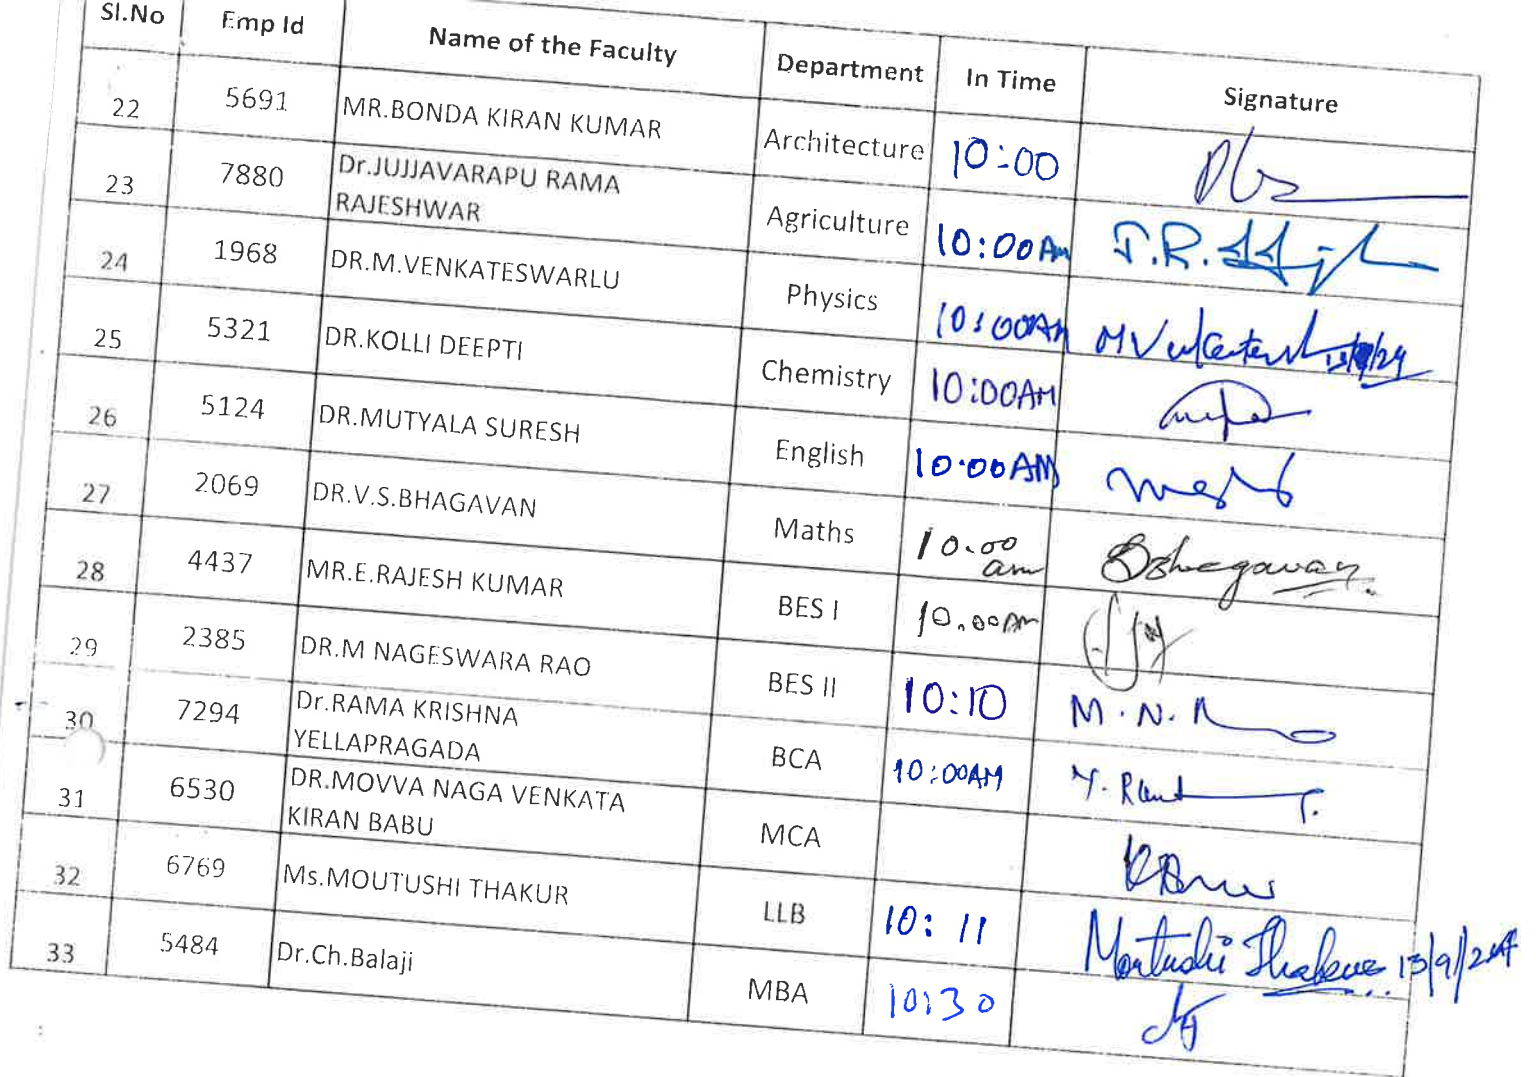 Sl.No Emp Id Name of the Faculty Department In Time Signature
22 5691 MR.BONDA KIRAN KUMAR Architecture 10:00
23 7880 Dr.JUJJAVARAPU RAMA
RAJESHWAR Agriculture 10:00 Am J.R.
24 1968 DR.M.VENKATESWARLU Physics 10:00AM
25 5321 DR.KOLLI DEEPTI Chemistry 10:00AM
26 5124 DR.MUTYALA SURESH English 10.00AM
27 2069 DR.V.S.BHAGAVAN Maths 10.00
am Bhagavan
28 4437 MR.E.RAJESH KUMAR BES I 10.00AM
29 2385 DR.M NAGESWARA RAO BES II 10:10 M.N.
30 7294 Dr.RAMA KRISHNA
YELLAPRAGADA BCA 10:00AM Y.
31 6530 DR.MOVVA NAGA VENKATA
KIRAN BABU MCA
32 6769 Ms.MOUTUSHI THAKUR LLB 10:11 Moutushi Thakur 13/9/2024
33 5484 Dr.Ch.Balaji MBA 10:30